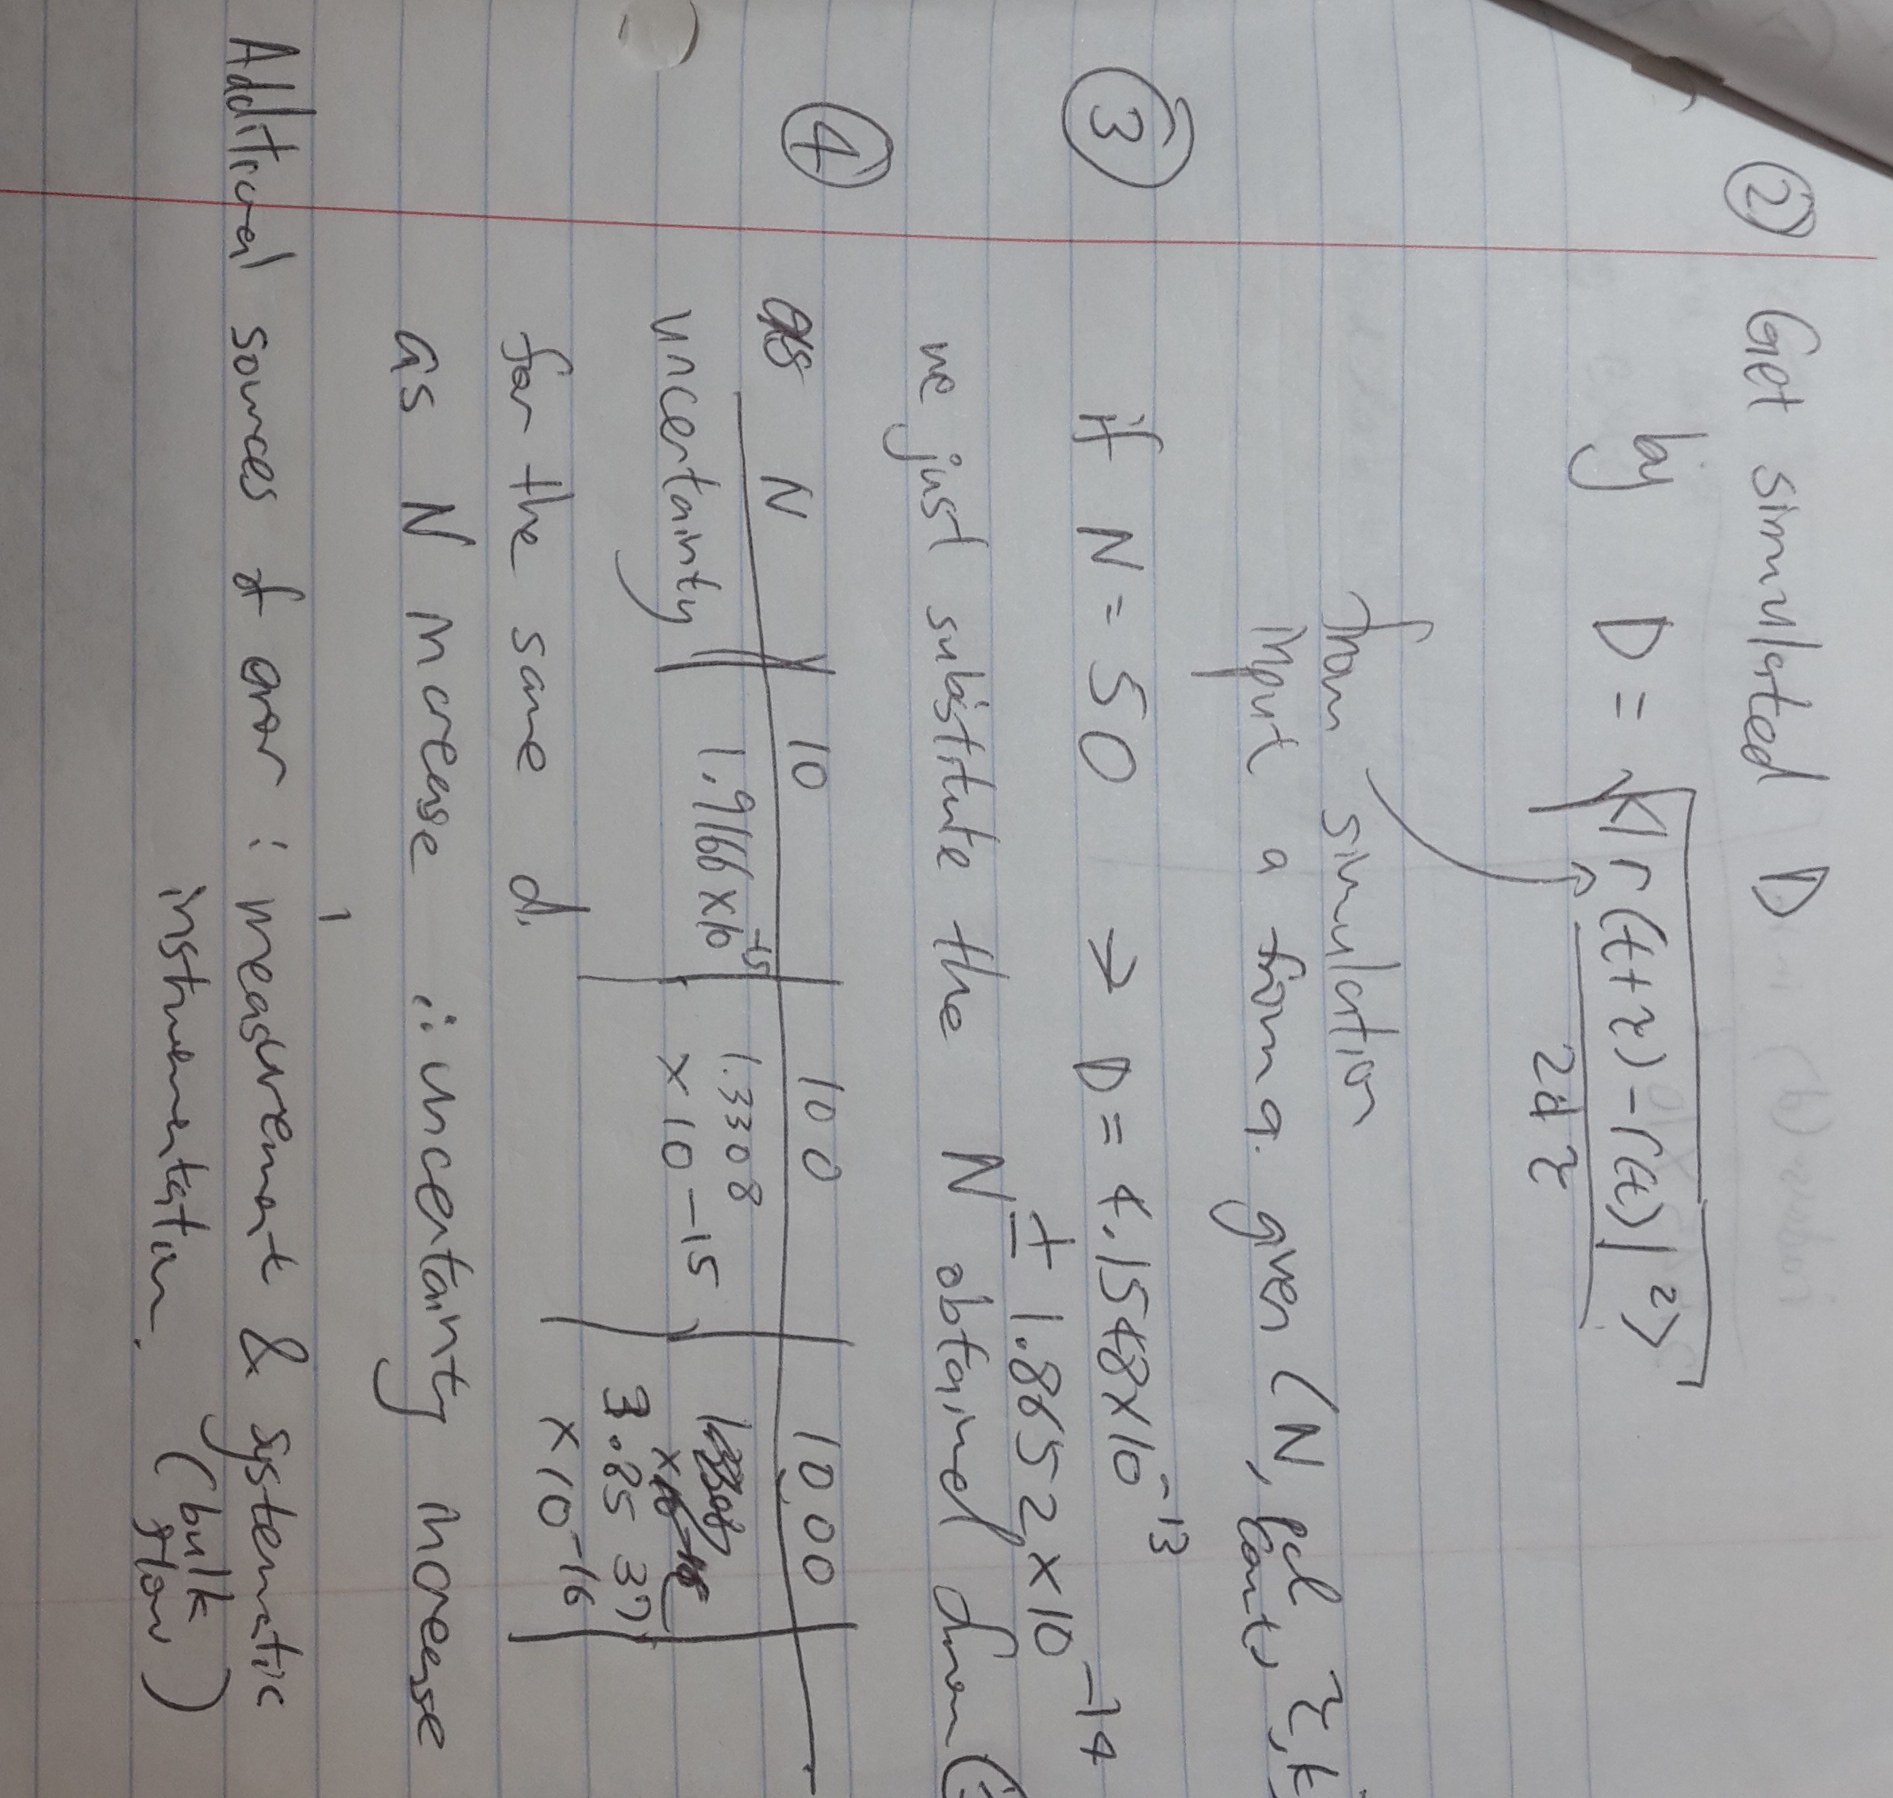 ② Get simulated D
by D = √<|r(t+τ)-r(t)|²>
2dτ
from simulation
input a from a given (N, pcl
conts, τ, k
③ if N = 50 → D = 4.1548×10⁻¹³
± 1.8652×10⁻¹⁴
we just substitute the N obtained from (
④ N 10 100 1000
uncertainty 1.9166×10⁻¹⁵ 1.3308 × 10⁻¹⁵ 3.8537 × 10⁻¹⁶
for the same d.
as N increase ∴ uncertainty increase
Additional sources of error : measurement & systematic
instrumentation. (bulk
flow)